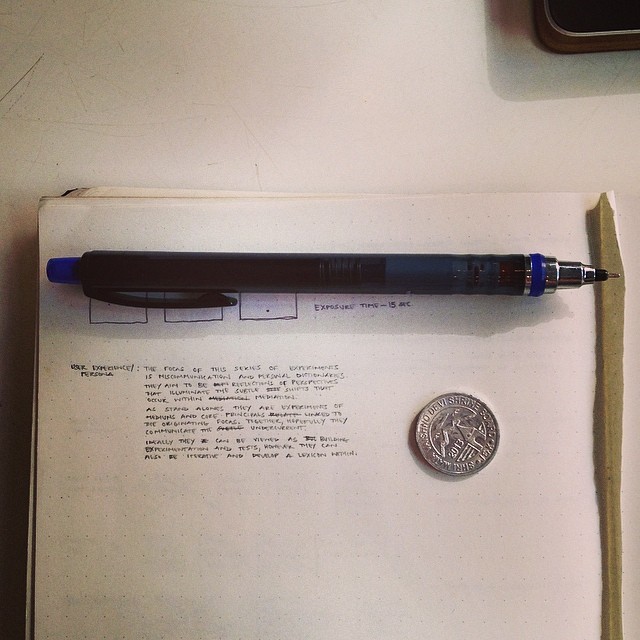 EXPOSURE TIME - 15 SEC
USER EXPERIENCE/: THE FOCUS OF THIS SERIES OF EXPERIMENTS
PERSONA IS MISCOMMUNICATION AND PERSONAL DICTIONARIES
THEY AIM TO BE REFLECTIONS OF PERSPECTIVES
THAT ILLUMINATE THE SUBTLE SHIFTS THAT
OCCUR WITHIN MEDIATION MEDIATION.
AS STAND ALONES THEY ARE EXPERIMENTS OF
MEDIUMS AND CORE PRINCIPALS LINKED TO
THE ORIGINATING FOCUS. TOGETHER, HOPEFULLY THEY
COMMUNICATE THE UNDERCURRENT.
IDEALLY THEY CAN BE VIEWED AS BUILDING
EXPERIMENTATION AND TESTS, HOWEVER THEY CAN
ALSO BE ITERATIVE AND DEVELOP A LEXICON WITHIN.